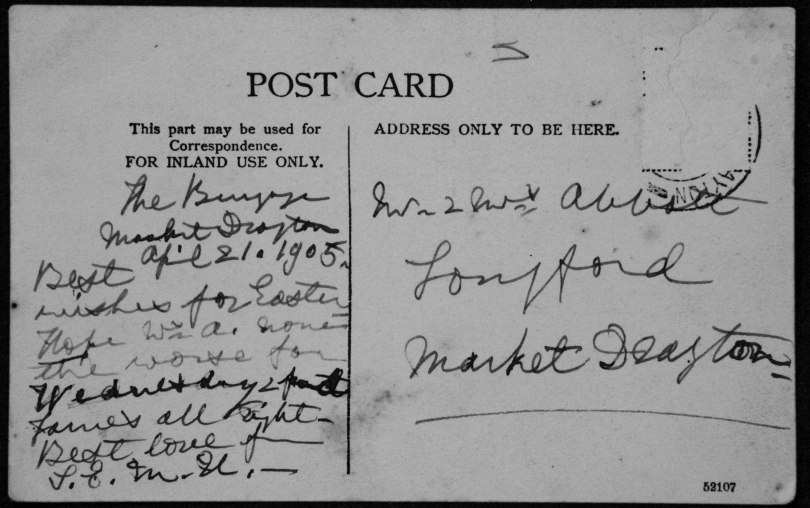 POST CARD
This part may be used for
Correspondence.
FOR INLAND USE ONLY.
ADDRESS ONLY TO BE HERE.
AYTON
The
Market Drayton
April 21. 1905.
Best
wishes for Easter
Hope Mrs A. none
the worse for
Wednesday &
James all right -
Best love fr
S. E. M. U. -
Mr & Mrs Abbott
Longford
Market Drayton
52107